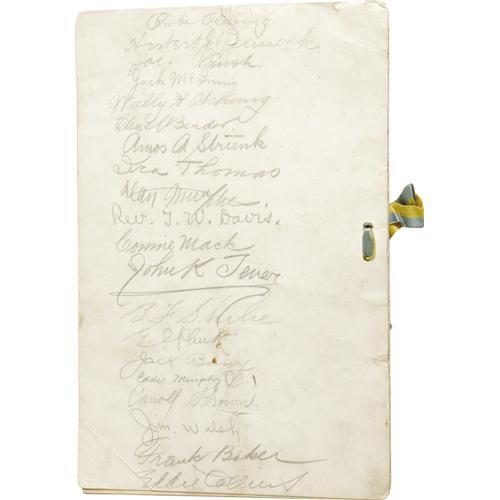 Rube Oldring
Herbert J. Pennock.
Joe. Bush.
Jack McInnis
Wally H Schang
Chas A Bender
Amos A Strunk
Ira Thomas
Rev. T. W. Davis.
Connie Mack
John K Tener
B. F. S
E S Plank
Jack Barry
Eddie Murphy
Carroll Brown.
Jim. Walsh
Frank Baker
Eddie Collins